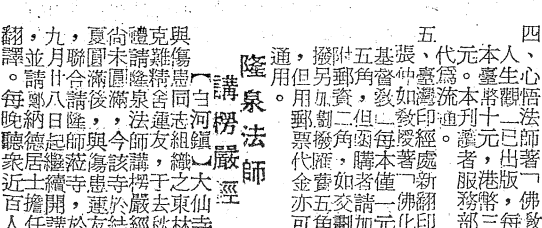 四、心悟法師著「佛敎
人生觀」已出版,每
本臺幣十元,港幣三
元。本刊讀者服務部
代爲流通。
五、臺灣印經處新翻印
張仲如敎授著「佛化
基督敎」每本僅一元
五角,但函購者請加
附郵資二角,如交劃
撥另加劃撥匯費五角
,但用郵票代金亦可
通用。
隆泉法師
講楞嚴經
【白河鎭】大仙寺
與傷患同志組織之東林
克難精舍蓮友,于去秋
禮請隆泉法師講楞嚴經
尙未圓滿,今該寺於結
夏圓滿後,與傷患蓮友
聯合請隆師蒞寺,於
九月廿八日起繼續開講
,並請鄭納德居士擔任
翻譯。每晚聽衆近百人